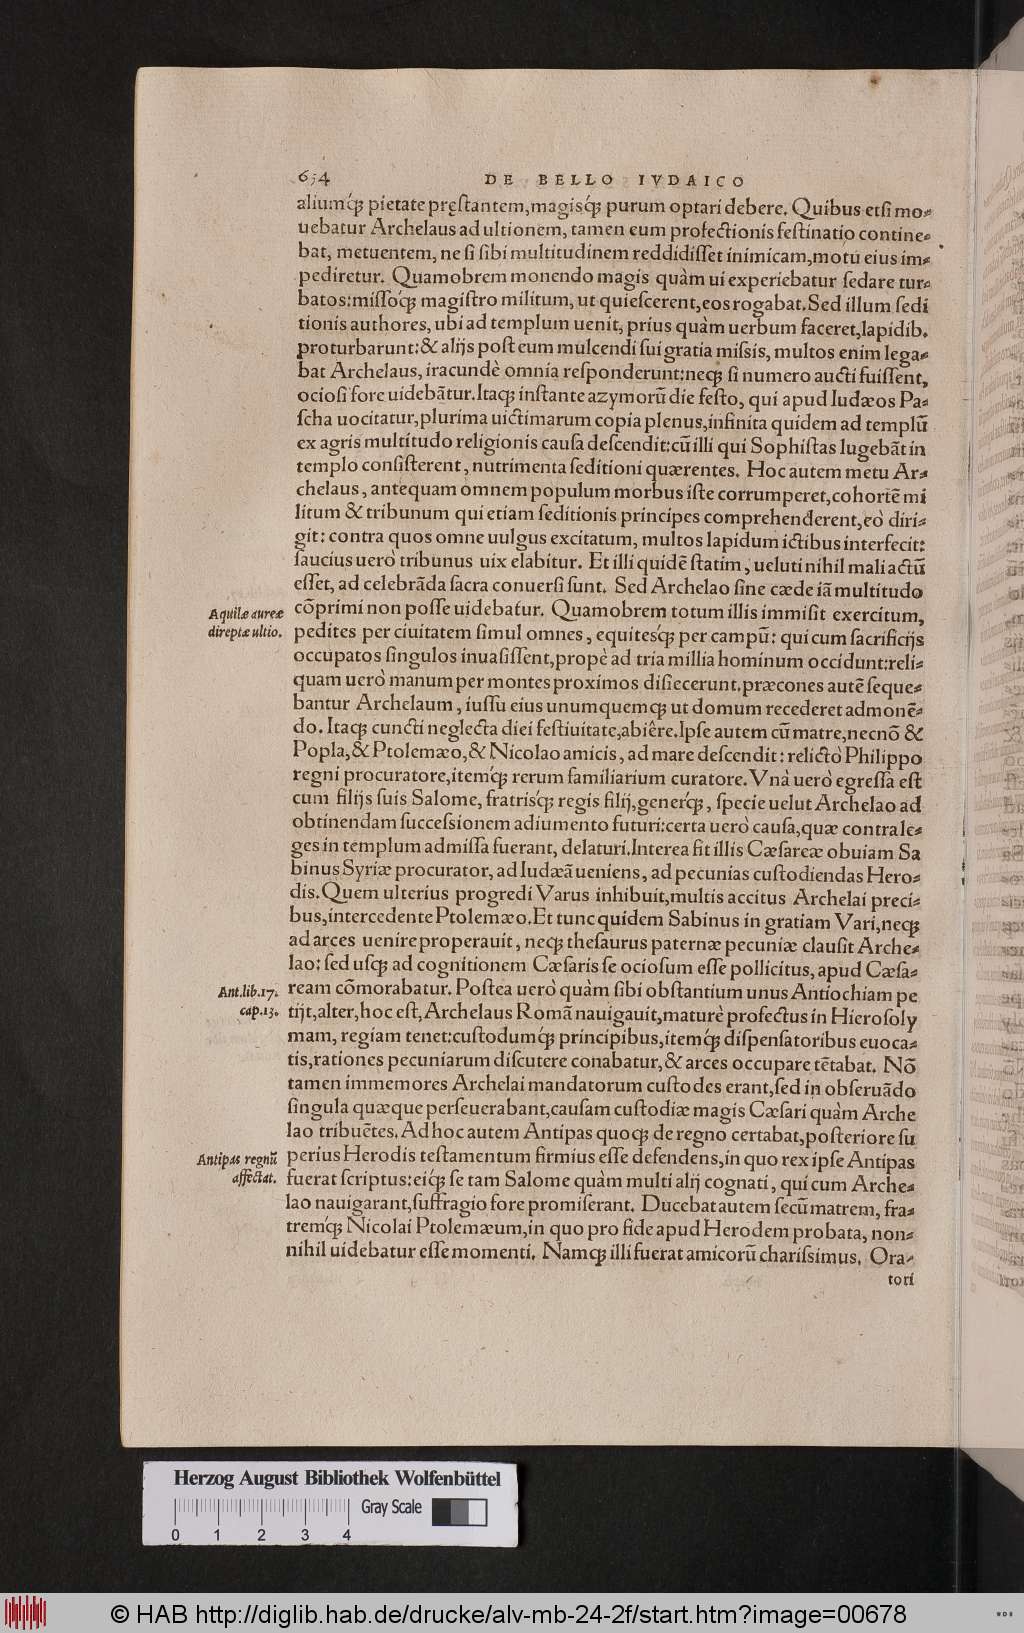 654 DE BELLO IVDAICO
aliumq́ꝫ pietate pręſtantem,magisq́ꝫ purum optari debere. Quibus etſi mo-
uebatur Archelaus ad ultionem, tamen eum profectionis feſtinatio contine-
bat, metuentem, ne ſi ſibi multitudinem reddidiſſet inimicam,motu eius im-
pediretur. Quamobrem monendo magis quàm ui experiebatur ſedare tur-
batos:miſſoq́ꝫ magiſtro militum, ut quieſcerent,eos rogabat.Sed illum ſedi
tionis authores, ubi ad templum uenit, prius quàm uerbum faceret,lapidib.
proturbarunt:& alijs poſt eum mulcendi ſui gratia miſsis, multos enim lega-
bat Archelaus, iracundè omnia reſponderunt:neqꝫ ſi numero aucti fuiſſent,
ocioſi fore uidebãtur.Itaqꝫ inſtante azymorũ die feſto, qui apud Iudæos Pa-
ſcha uocitatur,plurima uictimarum copia plenus,infinita quidem ad templũ
ex agris multitudo religionis cauſa deſcendit:cũ illi qui Sophiſtas lugebãt in
templo conſiſterent, nutrimenta ſeditioni quærentes. Hoc autem metu Ar-
chelaus, antequam omnem populum morbus iſte corrumperet,cohortẽ mi
litum & tribunum qui etiam ſeditionis principes comprehenderent,eò diri-
git: contra quos omne uulgus excitatum, multos lapidum ictibus interfecit:
ſaucius uerò tribunus uix elabitur. Et illi quidẽ ſtatim, ueluti nihil mali actũ
eſſet, ad celebrãda ſacra conuerſi ſunt. Sed Archelao ſine cæde iã multitudo
Aquilæ aureæ
direptæ ultio.
cõprimi non poſſe uidebatur. Quamobrem totum illis immiſit exercitum,
pedites per ciuitatem ſimul omnes, equitesq́ꝫ per campũ: qui cum ſacrificijs
occupatos ſingulos inuaſiſſent,propè ad tria millia hominum occidunt:reli-
quam uerò manum per montes proximos diſiecerunt.præcones autẽ ſeque-
bantur Archelaum, iuſſu eius unumquemqꝫ ut domum recederet admonẽ-
do. Itaqꝫ cuncti neglecta diei feſtiuitate,abiêre.Ipſe autem cũ matre,necnõ &
Popla,& Ptolemæo,& Nicolao amicis, ad mare deſcendit: relictò Philippo
regni procuratore,itemq́ꝫ rerum familiarium curatore.Vnà uerò egreſſa eſt
cum filijs ſuis Salome, fratrisq́ꝫ regis filij,generq́ꝫ, ſpecie uelut Archelao ad
obtinendam ſucceſsionem adiumento futuri:certa uerò cauſa,quæ contra le-
ges in templum admiſſa fuerant, delaturi.Interea fit illis Cæſareæ obuiam Sa
binus Syriæ procurator, ad Iudæã ueniens, ad pecunias cuſtodiendas Hero-
dis.Quem ulterius progredi Varus inhibuit,multis accitus Archelai preci-
bus,intercedente Ptolemæo.Et tunc quidem Sabinus in gratiam Vari,neqꝫ
ad arces uenire properauit, neqꝫ theſaurus paternæ pecuniæ clauſit Arche-
lao: ſed uſqꝫ ad cognitionem Cæſaris ſe ocioſum eſſe pollicitus, apud Cæſa-
Ant.lib.17.
cap.13.
ream cõmorabatur. Poſtea uerò quàm ſibi obſtantium unus Antiochiam pe
tijt,alter,hoc eſt, Archelaus Romã nauigauit,maturè profectus in Hieroſoly
mam, regiam tenet:cuſtodumq́ꝫ principibus,itemq́ꝫ diſpenſatoribus euoca-
tis,rationes pecuniarum diſcutere conabatur,& arces occupare tẽtabat. Nõ
tamen immemores Archelai mandatorum cuſtodes erant,ſed in obſeruãdo
ſingula quæque perſeuerabant,cauſam cuſtodiæ magis Cæſari quàm Arche
lao tribuẽtes. Ad hoc autem Antipas quoqꝫ de regno certabat,poſteriore ſu
Antipas regnũ
affectat.
perius Herodis teſtamentum firmius eſſe defendens,in quo rex ipſe Antipas
fuerat ſcriptus:eiq́ꝫ ſe tam Salome quàm multi alij cognati, qui cum Arche-
lao nauigarant,ſuffragio fore promiſerant. Ducebat autem ſecũ matrem, fra-
tremq́ꝫ Nicolai Ptolemæum,in quo pro fide apud Herodem probata, non-
nihil uidebatur eſſe momenti. Namqꝫ illi fuerat amicorũ chariſsimus. Ora-
tori
Herzog August Bibliothek Wolfenbüttel
Gray Scale
0 1 2 3 4
© HAB http://diglib.hab.de/drucke/alv-mb-24-2f/start.htm?image=00678